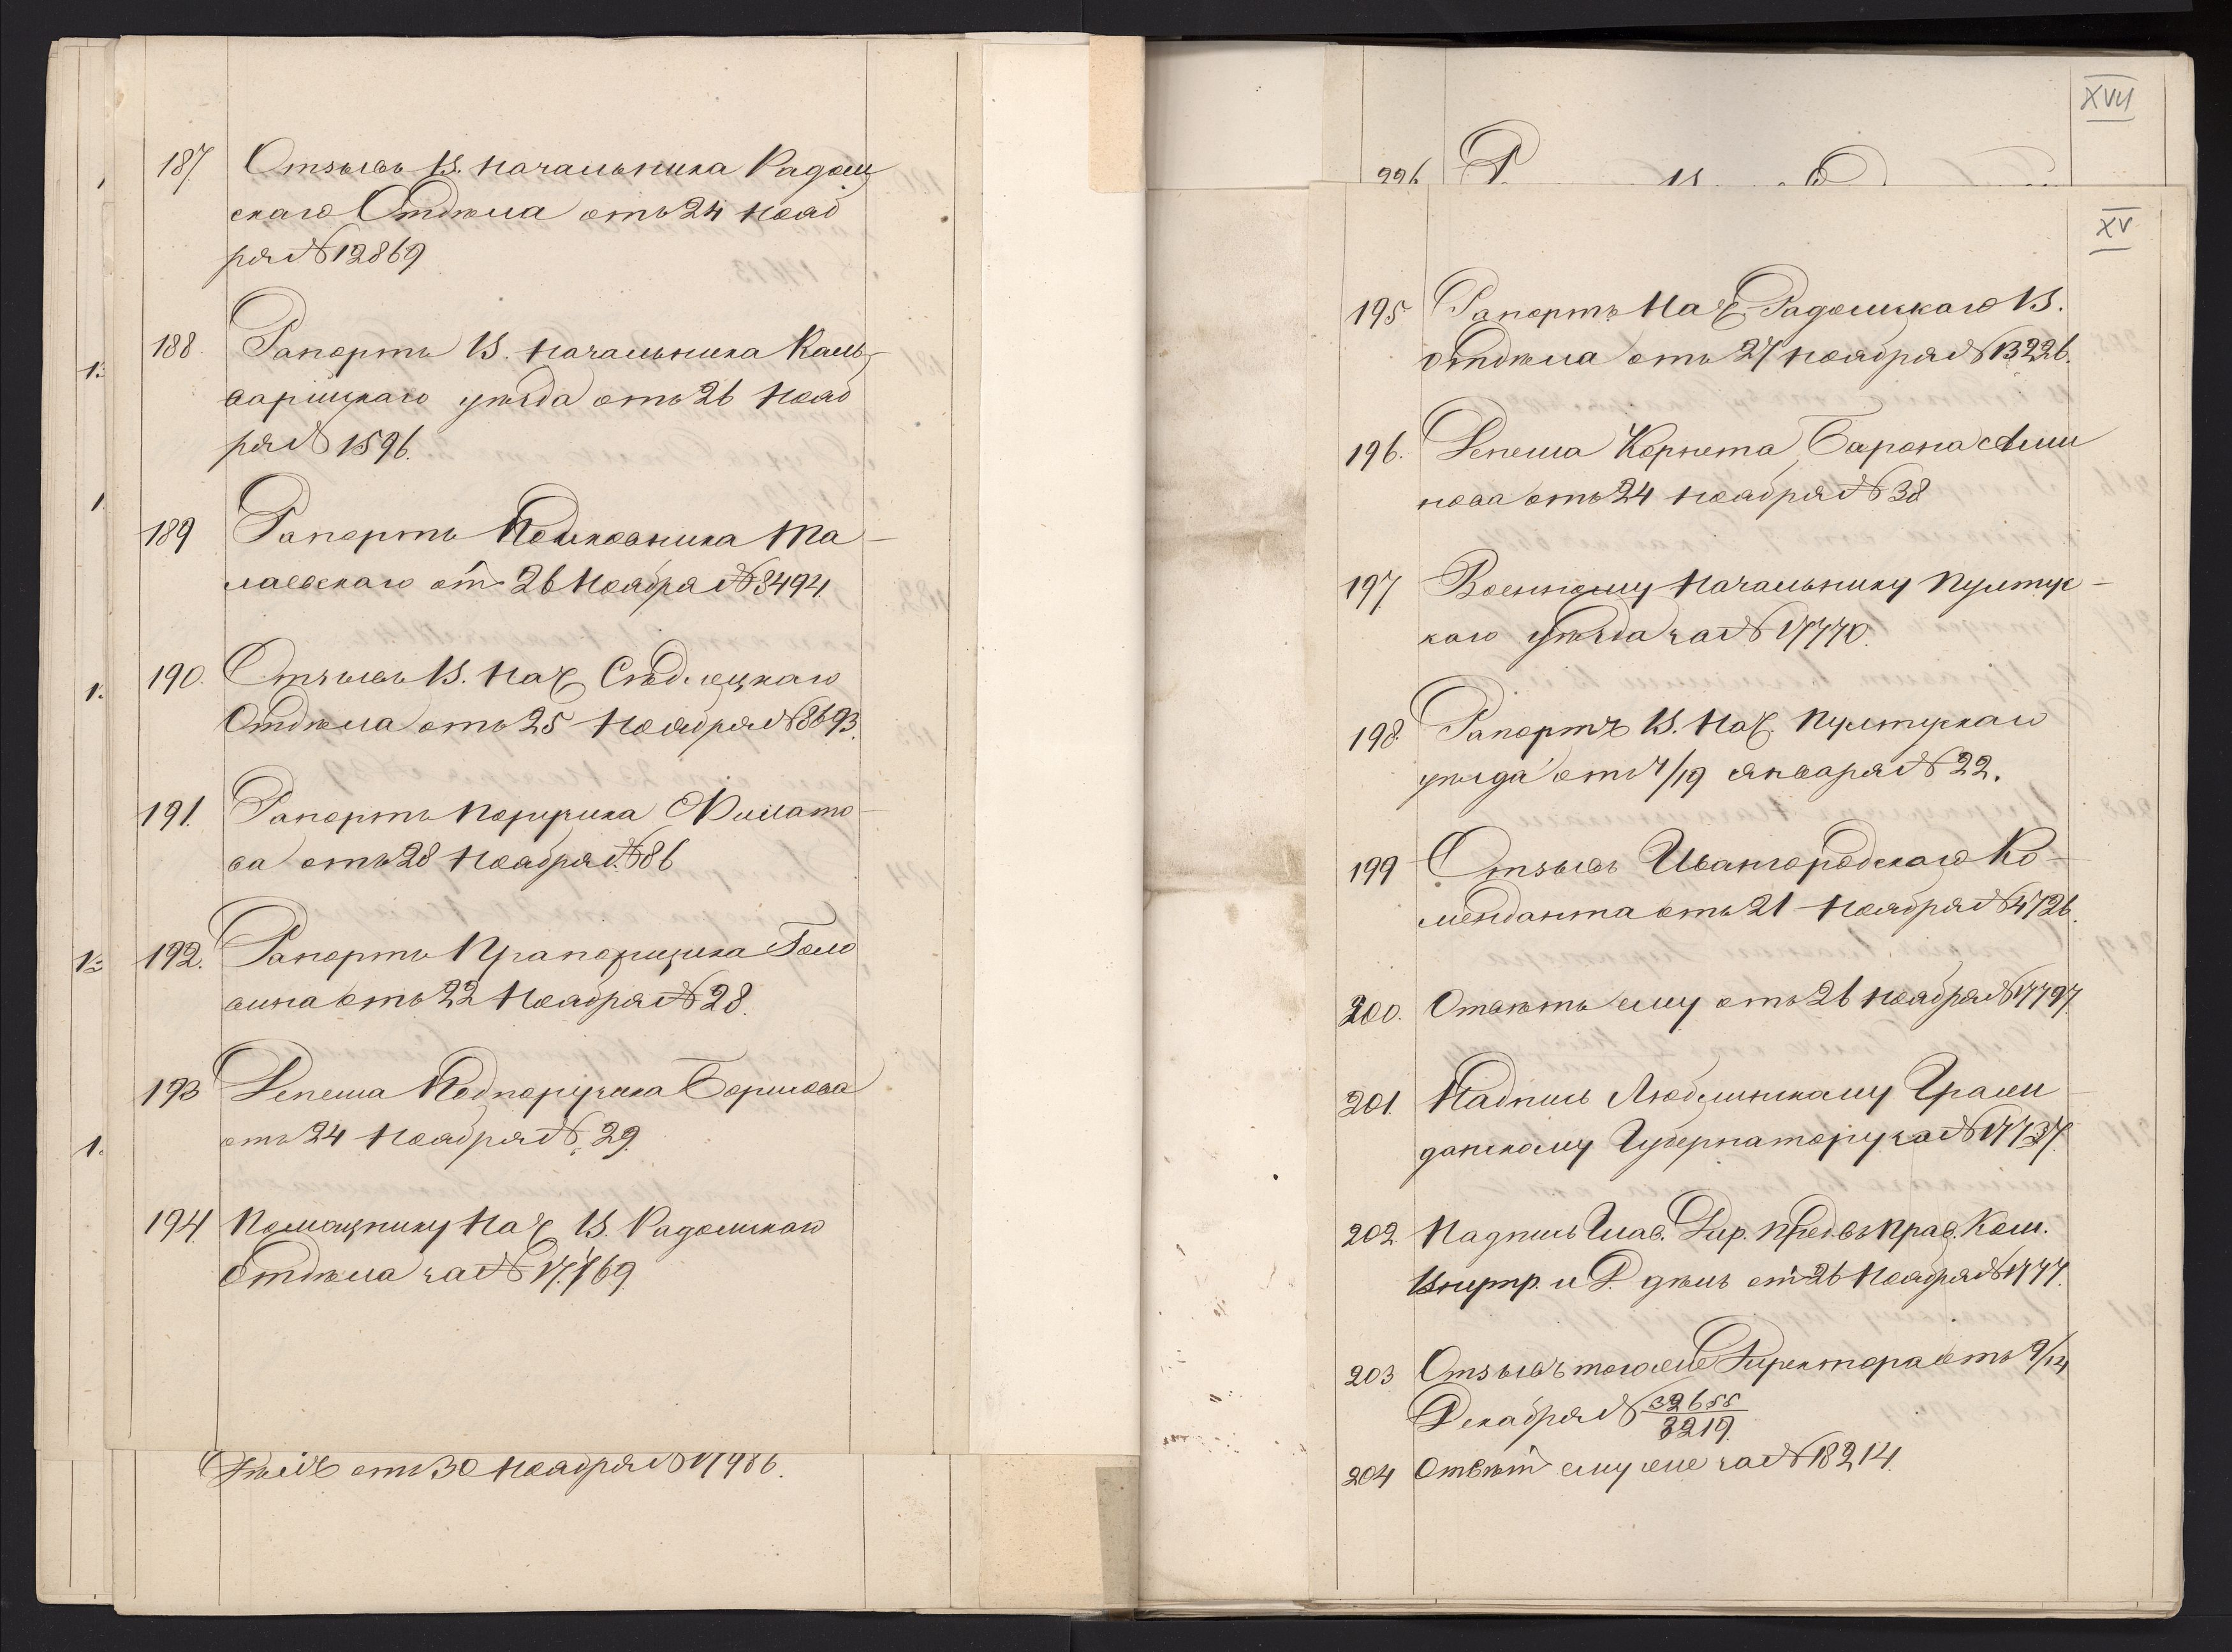 187. Отзывъ В. Начальника Радом
скаго Отдѣла отъ 24 Нояб
ря № 12869
188. Рапортъ В. Начальника Каль
варійскаго уѣзда отъ 26 Нояб
ря № 1596.
189 Рапортъ Полковника Та-
лаевскаго отъ 26 Ноября № 3494
190. Отзывъ В. Нач. Сѣдлецкаго
Отдѣла отъ 25 Ноября № 8693.
191. Рапортъ Поручика Филато-
ва отъ 28 Ноября № 86
192. Рапортъ Прапорщика Голо
вина отъ 22 Ноября № 28.
193 Депеша Подпоручика Борисова
отъ 24 Ноября № 29.
194 Помощнику Нач. В. Радомскаго
Отдѣла за № 17769
Дѣлъ отъ 30 Ноября № 17986.
XVII
226
XV
195 Рапортъ Нач. Радомскаго В.
Отдѣла отъ 27 Ноября № 13226.
196. Депеша Корнета Барона Ами
нова отъ 24 Ноября № 38
197 Военному Начальнику Пултус-
каго уѣзда за № 17770.
198. Рапортъ В. Нач. Пултускаго
уѣзда отъ 7/19 Января № 22.
199 Отзывъ Ивангородскаго Ко-
менданта отъ 21 Ноября № 4726.
200. Отвѣтъ ему отъ 26 Ноября № 17797.
201. Надпись Люблинскому Граж
данскому Губернатору за № 17737.
202. Надпись Глав. Дир. Пред. въ Прав. Ком.
Внутр. и Д. дѣлъ отъ 26 Ноября № 1777.
203 Отзывъ того же Директора отъ 2/14
Декабря № 32655/3219.
204 Отвѣтъ ему же за № 18214.